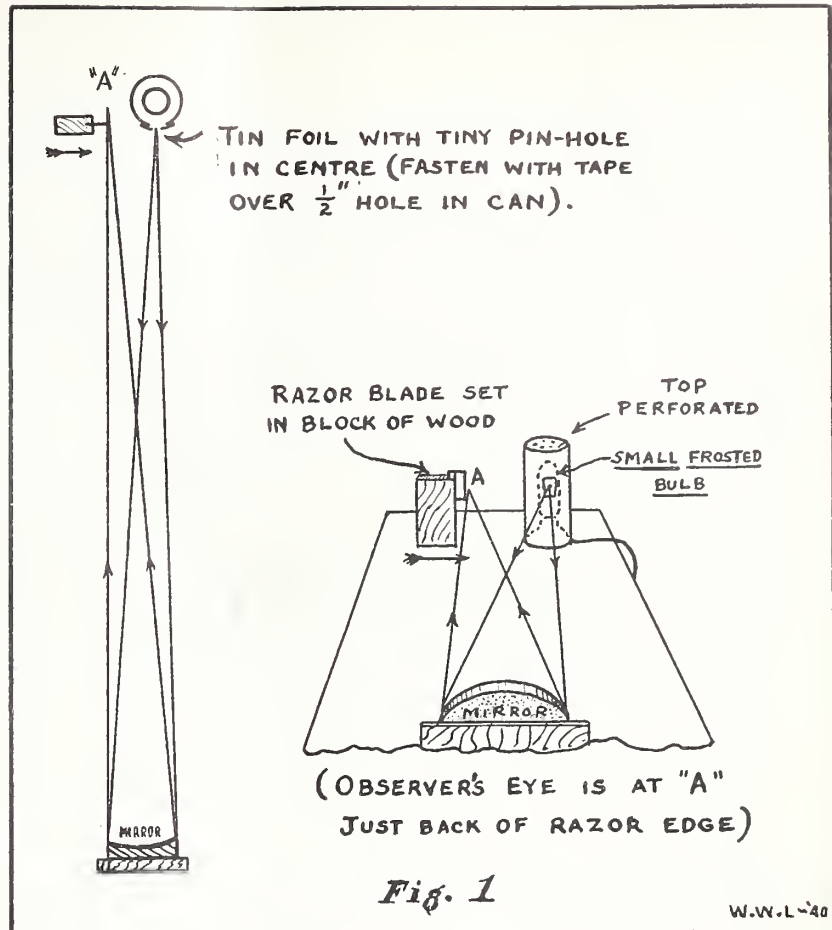 "A"
TIN FOIL WITH TINY PIN-HOLE
IN CENTRE (FASTEN WITH TAPE
OVER 1/2" HOLE IN CAN).
RAZOR BLADE SET
IN BLOCK OF WOOD
TOP
PERFORATED
SMALL FROSTED
BULB
A
MIRROR
MIRROR
(OBSERVER'S EYE IS AT "A"
JUST BACK OF RAZOR EDGE)
Fig. 1
W.W.L-'40